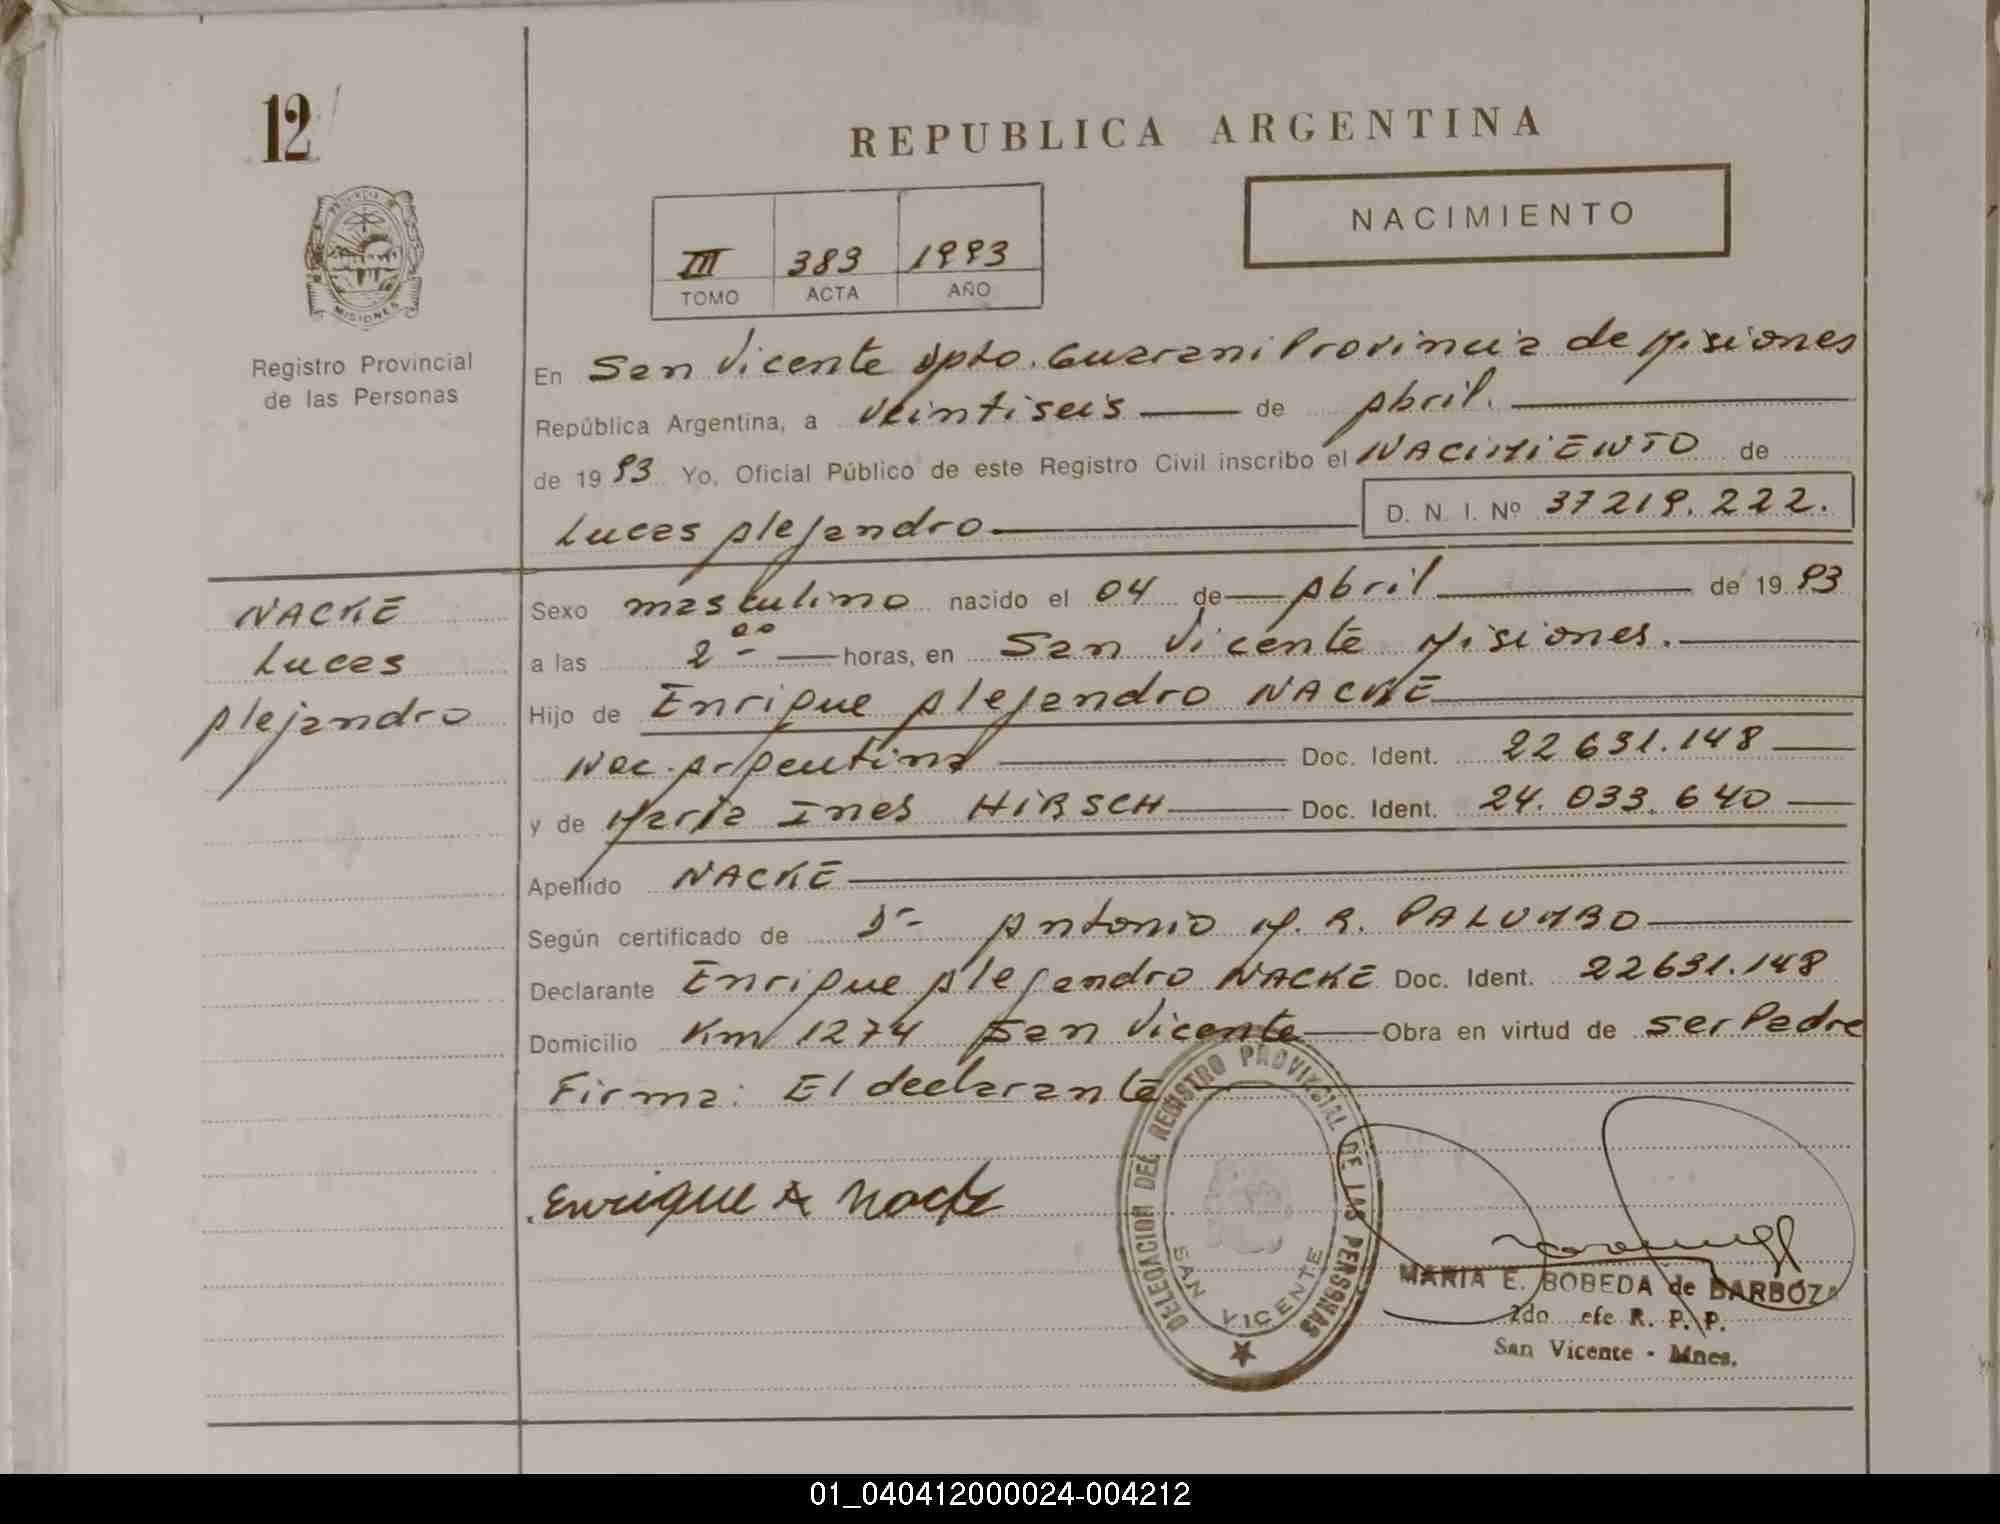 12
PROVINCIA DE
MISIONES
Registro Provincial
de las Personas
REPUBLICA ARGENTINA
NACIMIENTO
III 383 1993
TOMO ACTA AÑO
En San Vicente Dpto. Guarani Provincia de Misiones
República Argentina, a veintiseis de Abril.
de 1993 Yo, Oficial Público de este Registro Civil inscribo el NACIMIENTO de
D. N. I. Nº 37219.222.
Lucas Alejandro
NACKE
Lucas
Alejandro
Sexo masculino nacido el 04 de Abril de 1993
a las 2 00 horas, en San Vicente Misiones.
Hijo de Enrique Alejandro NACKE
Nac. Argentina Doc. Ident. 22631.148
y de Maria Ines HIRSCH Doc. Ident. 24.033.640
Apellido NACKE
Según certificado de Dr Antonio M. R. PALUMBO
Declarante Enrique Alejandro NACKE Doc. Ident. 22631.148
Domicilio Km 1274 San Vicente Obra en virtud de ser Padre
Firma: El declarante
Enrique A Nacke
DELEGACION DEL REGISTRO PROVINCIAL DE LAS PERSONAS
SAN VICENTE
MARIA E. BOBEDA de BARBOZA
2do efe R. P. P.
San Vicente - Mnes.
01_040412000024-004212